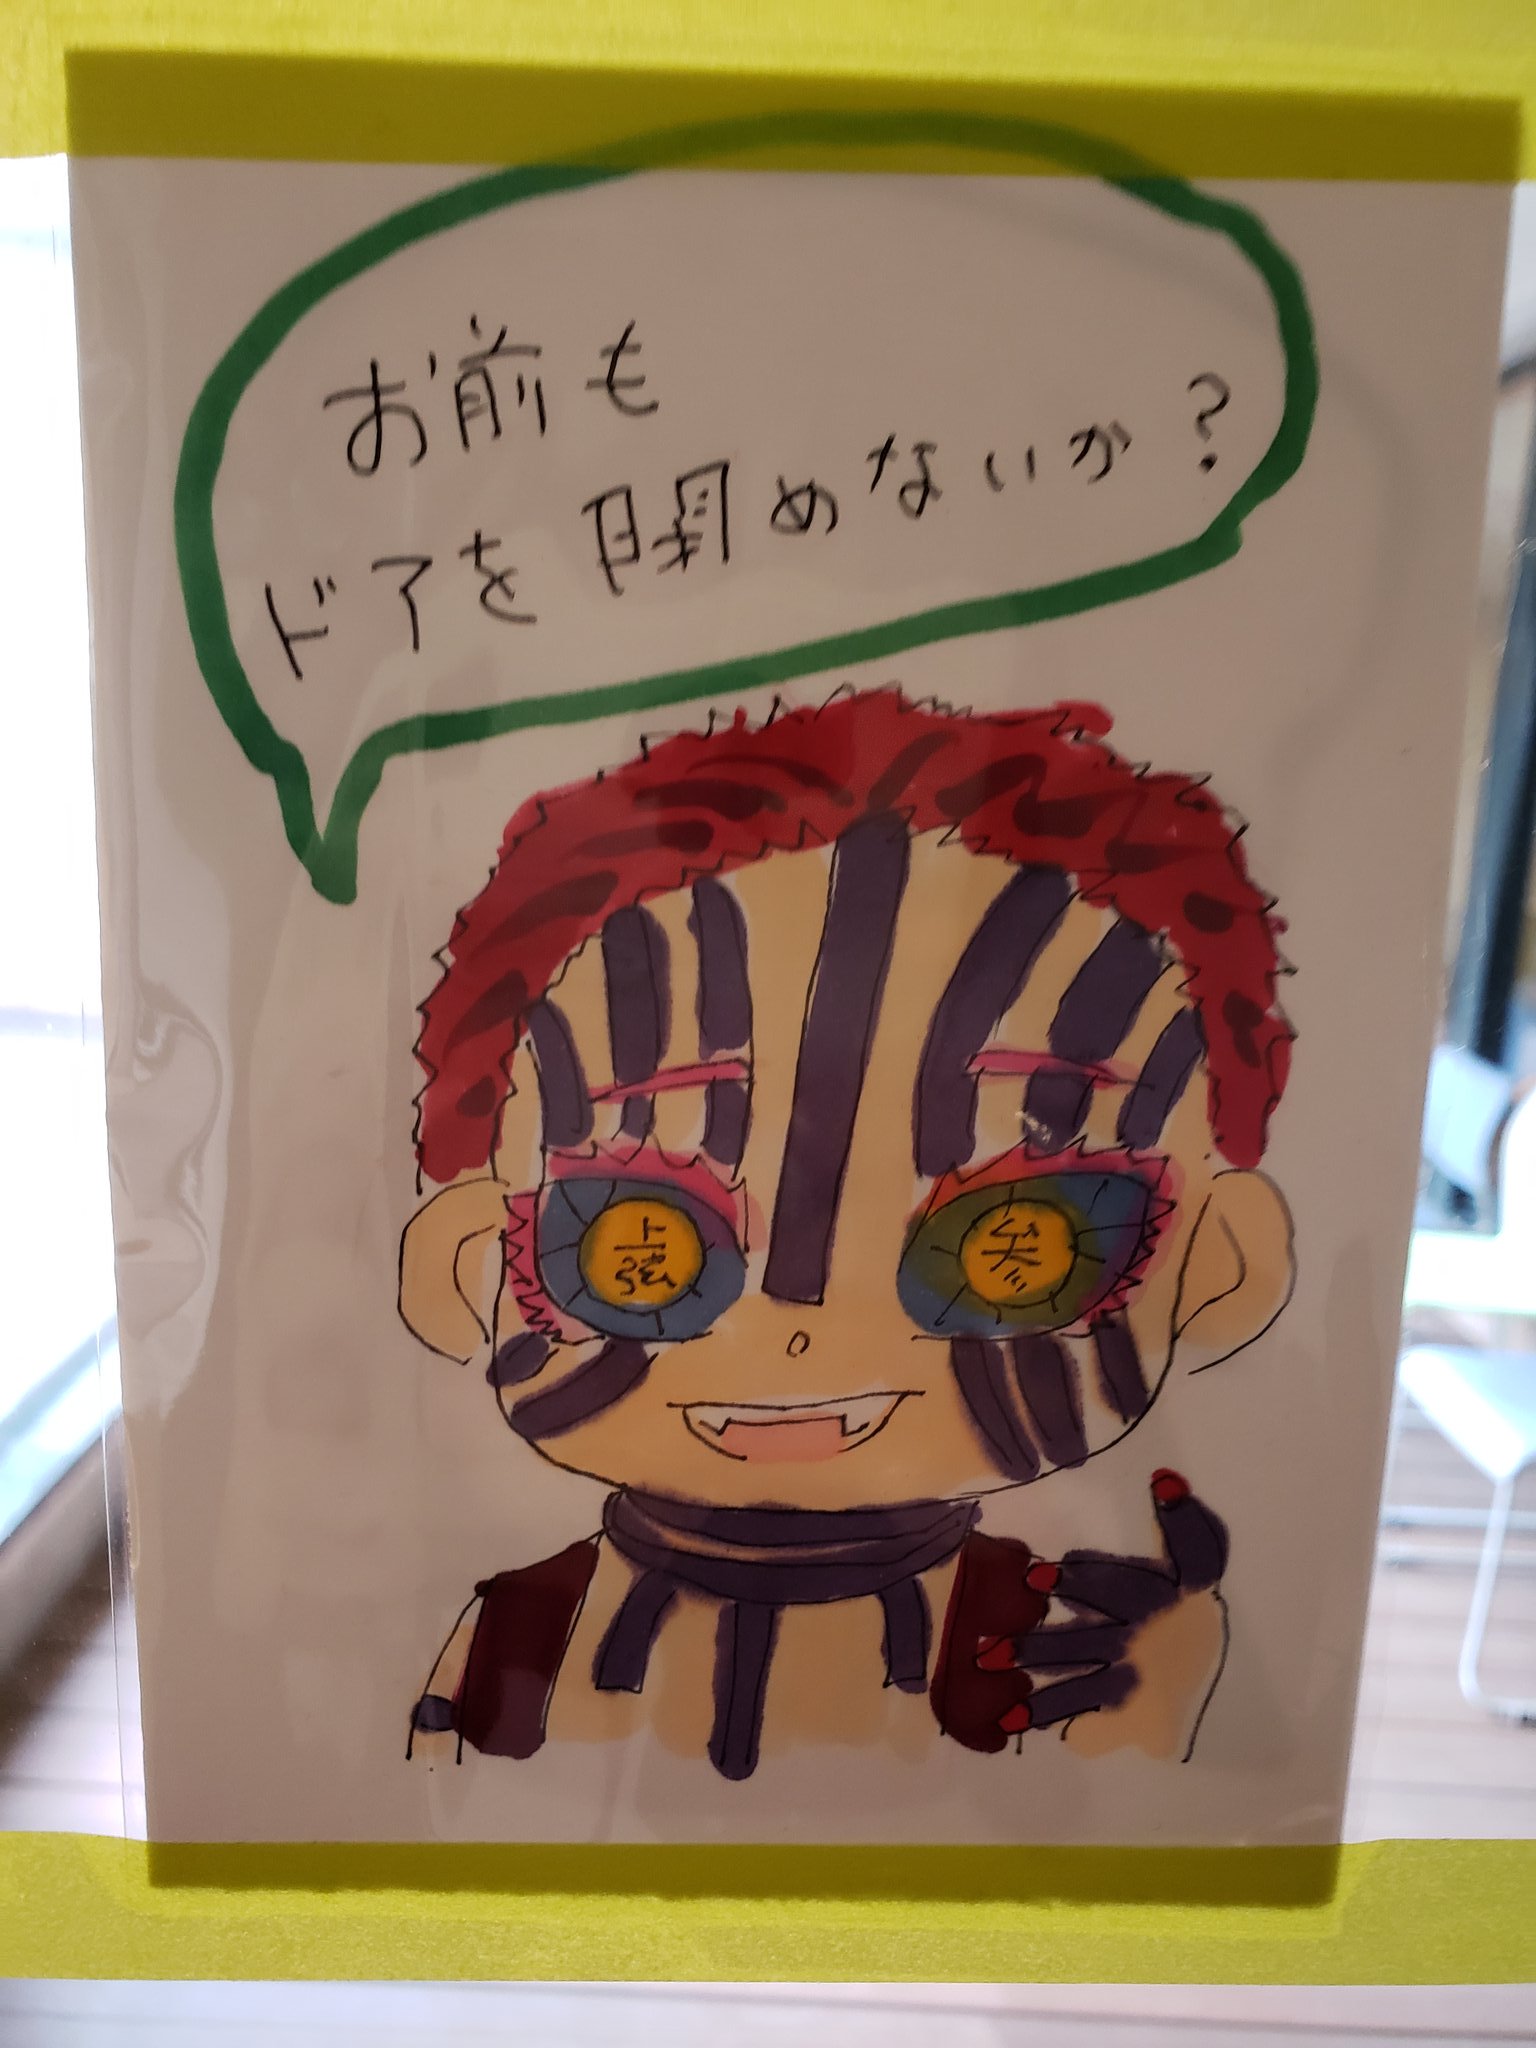 お前も
ドアを関めないか?
上弦
参